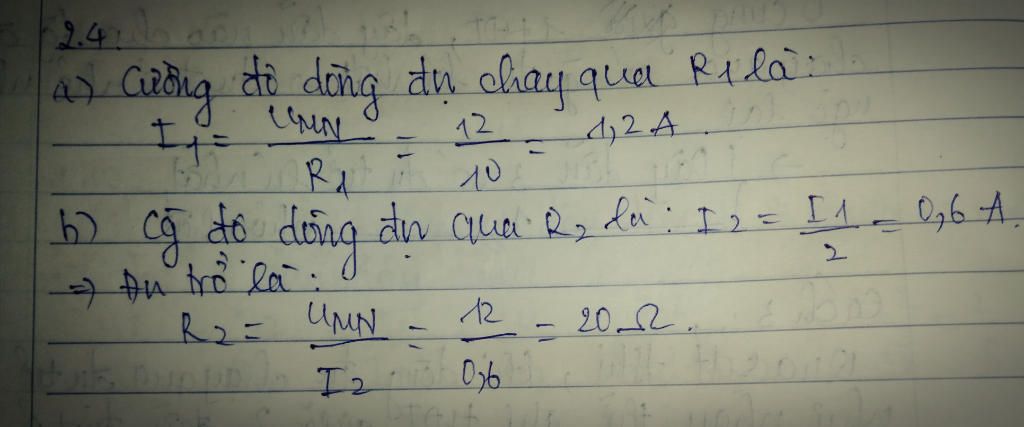 2.4.
a) Cường độ dòng đn chạy qua R1 là:
I1 = UMN / R1 = 12 / 10 = 1,2 A.
b) Cg độ dòng đn qua R2 là: I2 = I1 / 2 = 0,6 A.
=> Đn trở là:
R2 = UMN / I2 = 12 / 0,6 = 20 Ω.